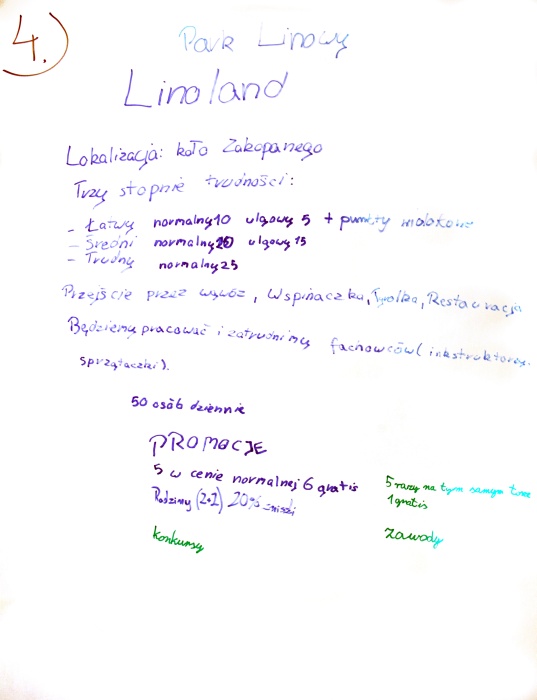 4.)
Park Linowy
Linoland
Lokalizacja: koło Zakopanego
Trzy stopnie trudności:
- Łatwy normalny 10 ulgowy 5 + punkty widokowe
- Średni normalny 20 ulgowy 15
- Trudny normalny 25
Przejście przez wąwóz, Wspinaczka, Tyrolka, Restauracja
Będziemy pracować i zatrudnimy fachowców (instruktorzy,
sprzątaczki).
50 osób dziennie
PROMOCJE
5 w cenie normalnej 6 gratis
Rodziny (2+2) 20% zniżki
5 razy na tym samym torze
1 gratis
konkursy
zawody